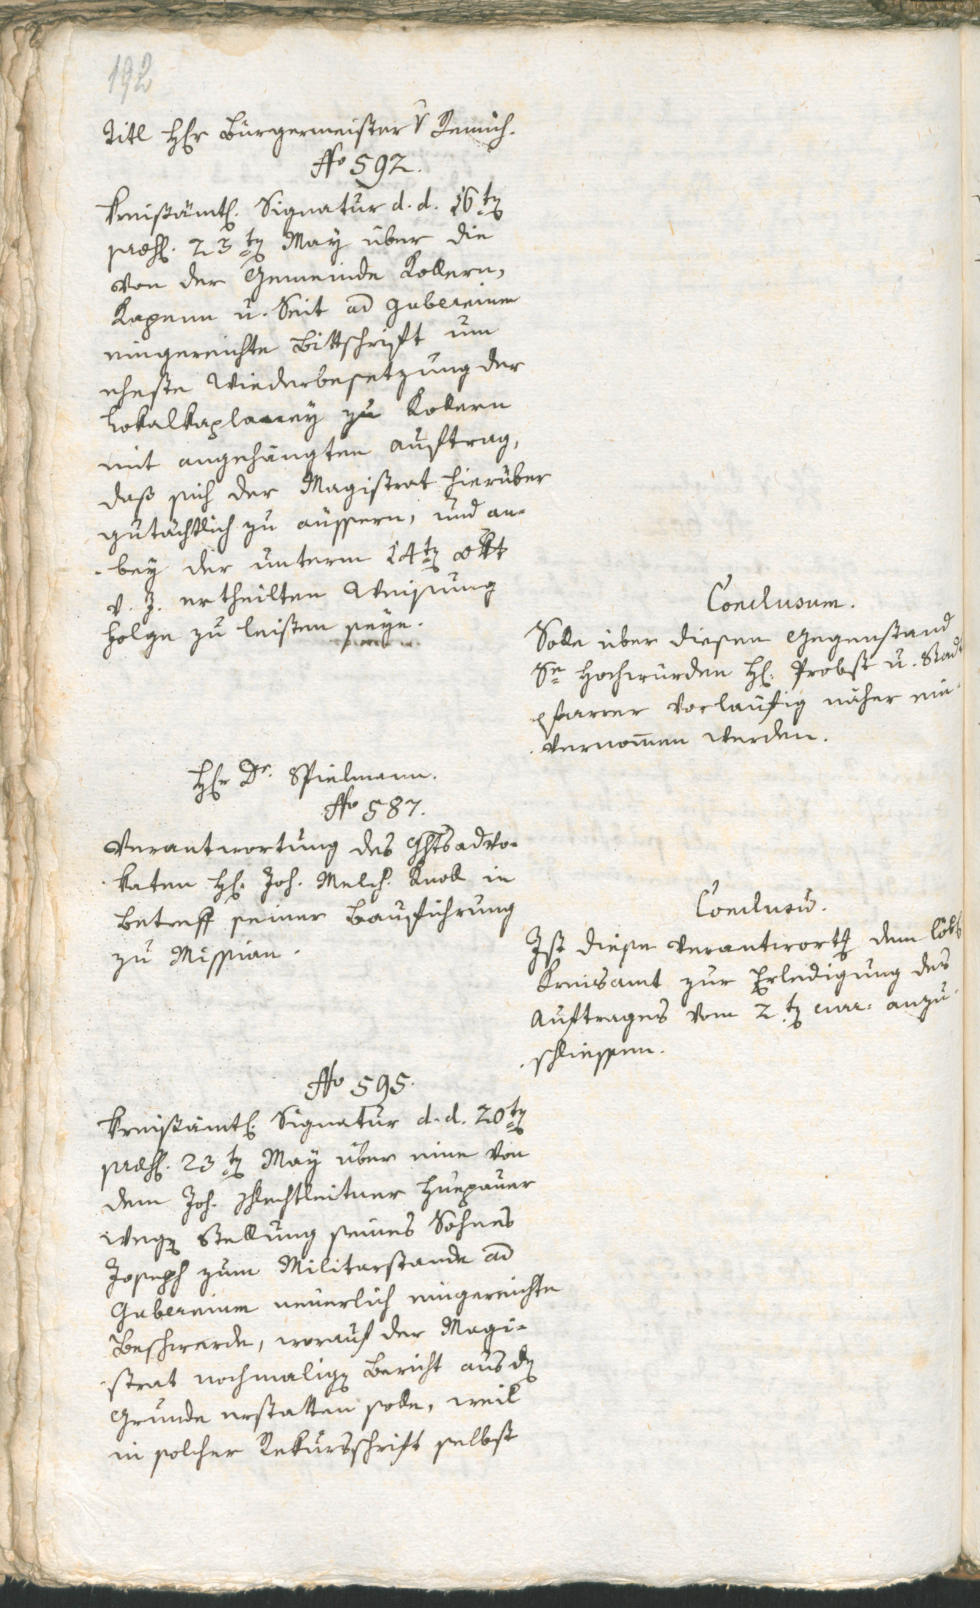 192
Titl Hfr Bürgermeister v Remich.
No 592.
Kreisämtl. Signatur d. d. 16ten
präs. 23ten May über die
von der Gemeinde Kollern,
Kapenn u. Seit ad Gubernium
eingereichte Bittschrift um
eheste Wiederbesetzung der
Lokalkaplaney zu Kollern
mit angehängten Auftrag,
daß sich der Magistrat hierüber
gutächtlich zu äussern, und an-
bey der unterm 14ten Okt
v. J. ertheilten Weisung
Folge zu leisten seye.
Conclusum.
Solle über diesen Gegenstand
Sr Hochwürden H. Probst u. Stadt
pfarrer vorläufig näher ein
vernommen werden.
Hfr Dr. Spielmann.
No 587.
Verantwortung des Ghtsadvo-
katen H. Joh. Melch. Knoll in
Betreff seiner Bauführung
zu Missian.
Conclusu.
Ist diese Verantwortg dem löbl
Kreisamt zur Erledigung des
Auftrages vom 2ten curr: anzu
schliessen.
No 595.
Kreisämtl. Signatur d. d. 20ten
präs. 23ten May über eine von
dem Joh. Schlechtleitner
wegen Stellung seines Sohnes
Joseph zum Militarstande ad
Gubernium neuerlich eingereichte
Beschwerde, worauf der Magi-
strat nochmaligen Bericht aus dem
Grunde erstatten solle, weil
in solcher Rekursschrift selbst